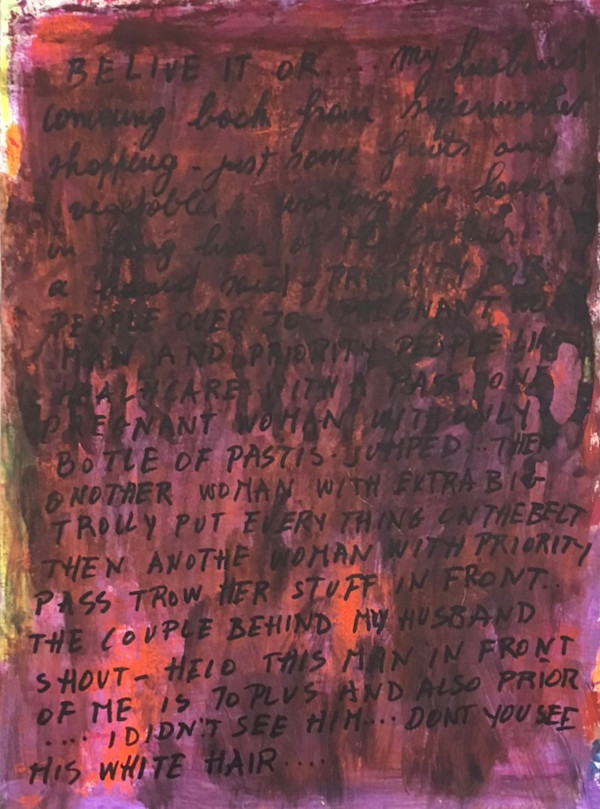 BELIVE IT OR.... My husband
comming back from supermarket
shopping - just some fruits and
vegetables.. waiting for hours
in long lines at the
a board said - PRIORITY FOR
PEOPLE OVER 70 - PREGNANT WO
MAN AND PRIORITY PEOPLE LIKE
HEALHCARE WITH A PASS ONE
PREGNANT WOMAN WITH ONLY
BOTLE OF PASTIS JUMPED.. THEN
ANOTHER WOMAN WITH EXTRA BIG
TROLLY PUT EVERY THING ON THE BELT
THEN ANOTHE WOMAN WITH PRIORITY
PASS TROW HER STUFF IN FRONT..
THE COUPLE BEHIND MY HUSBAND
SHOUT - HELO THIS MAN IN FRONT
OF ME IS 70 PLUS AND ALSO PRIOR
.... I DIDN'T SEE HIM... DONT YOU SEE
HIS WHITE HAIR....